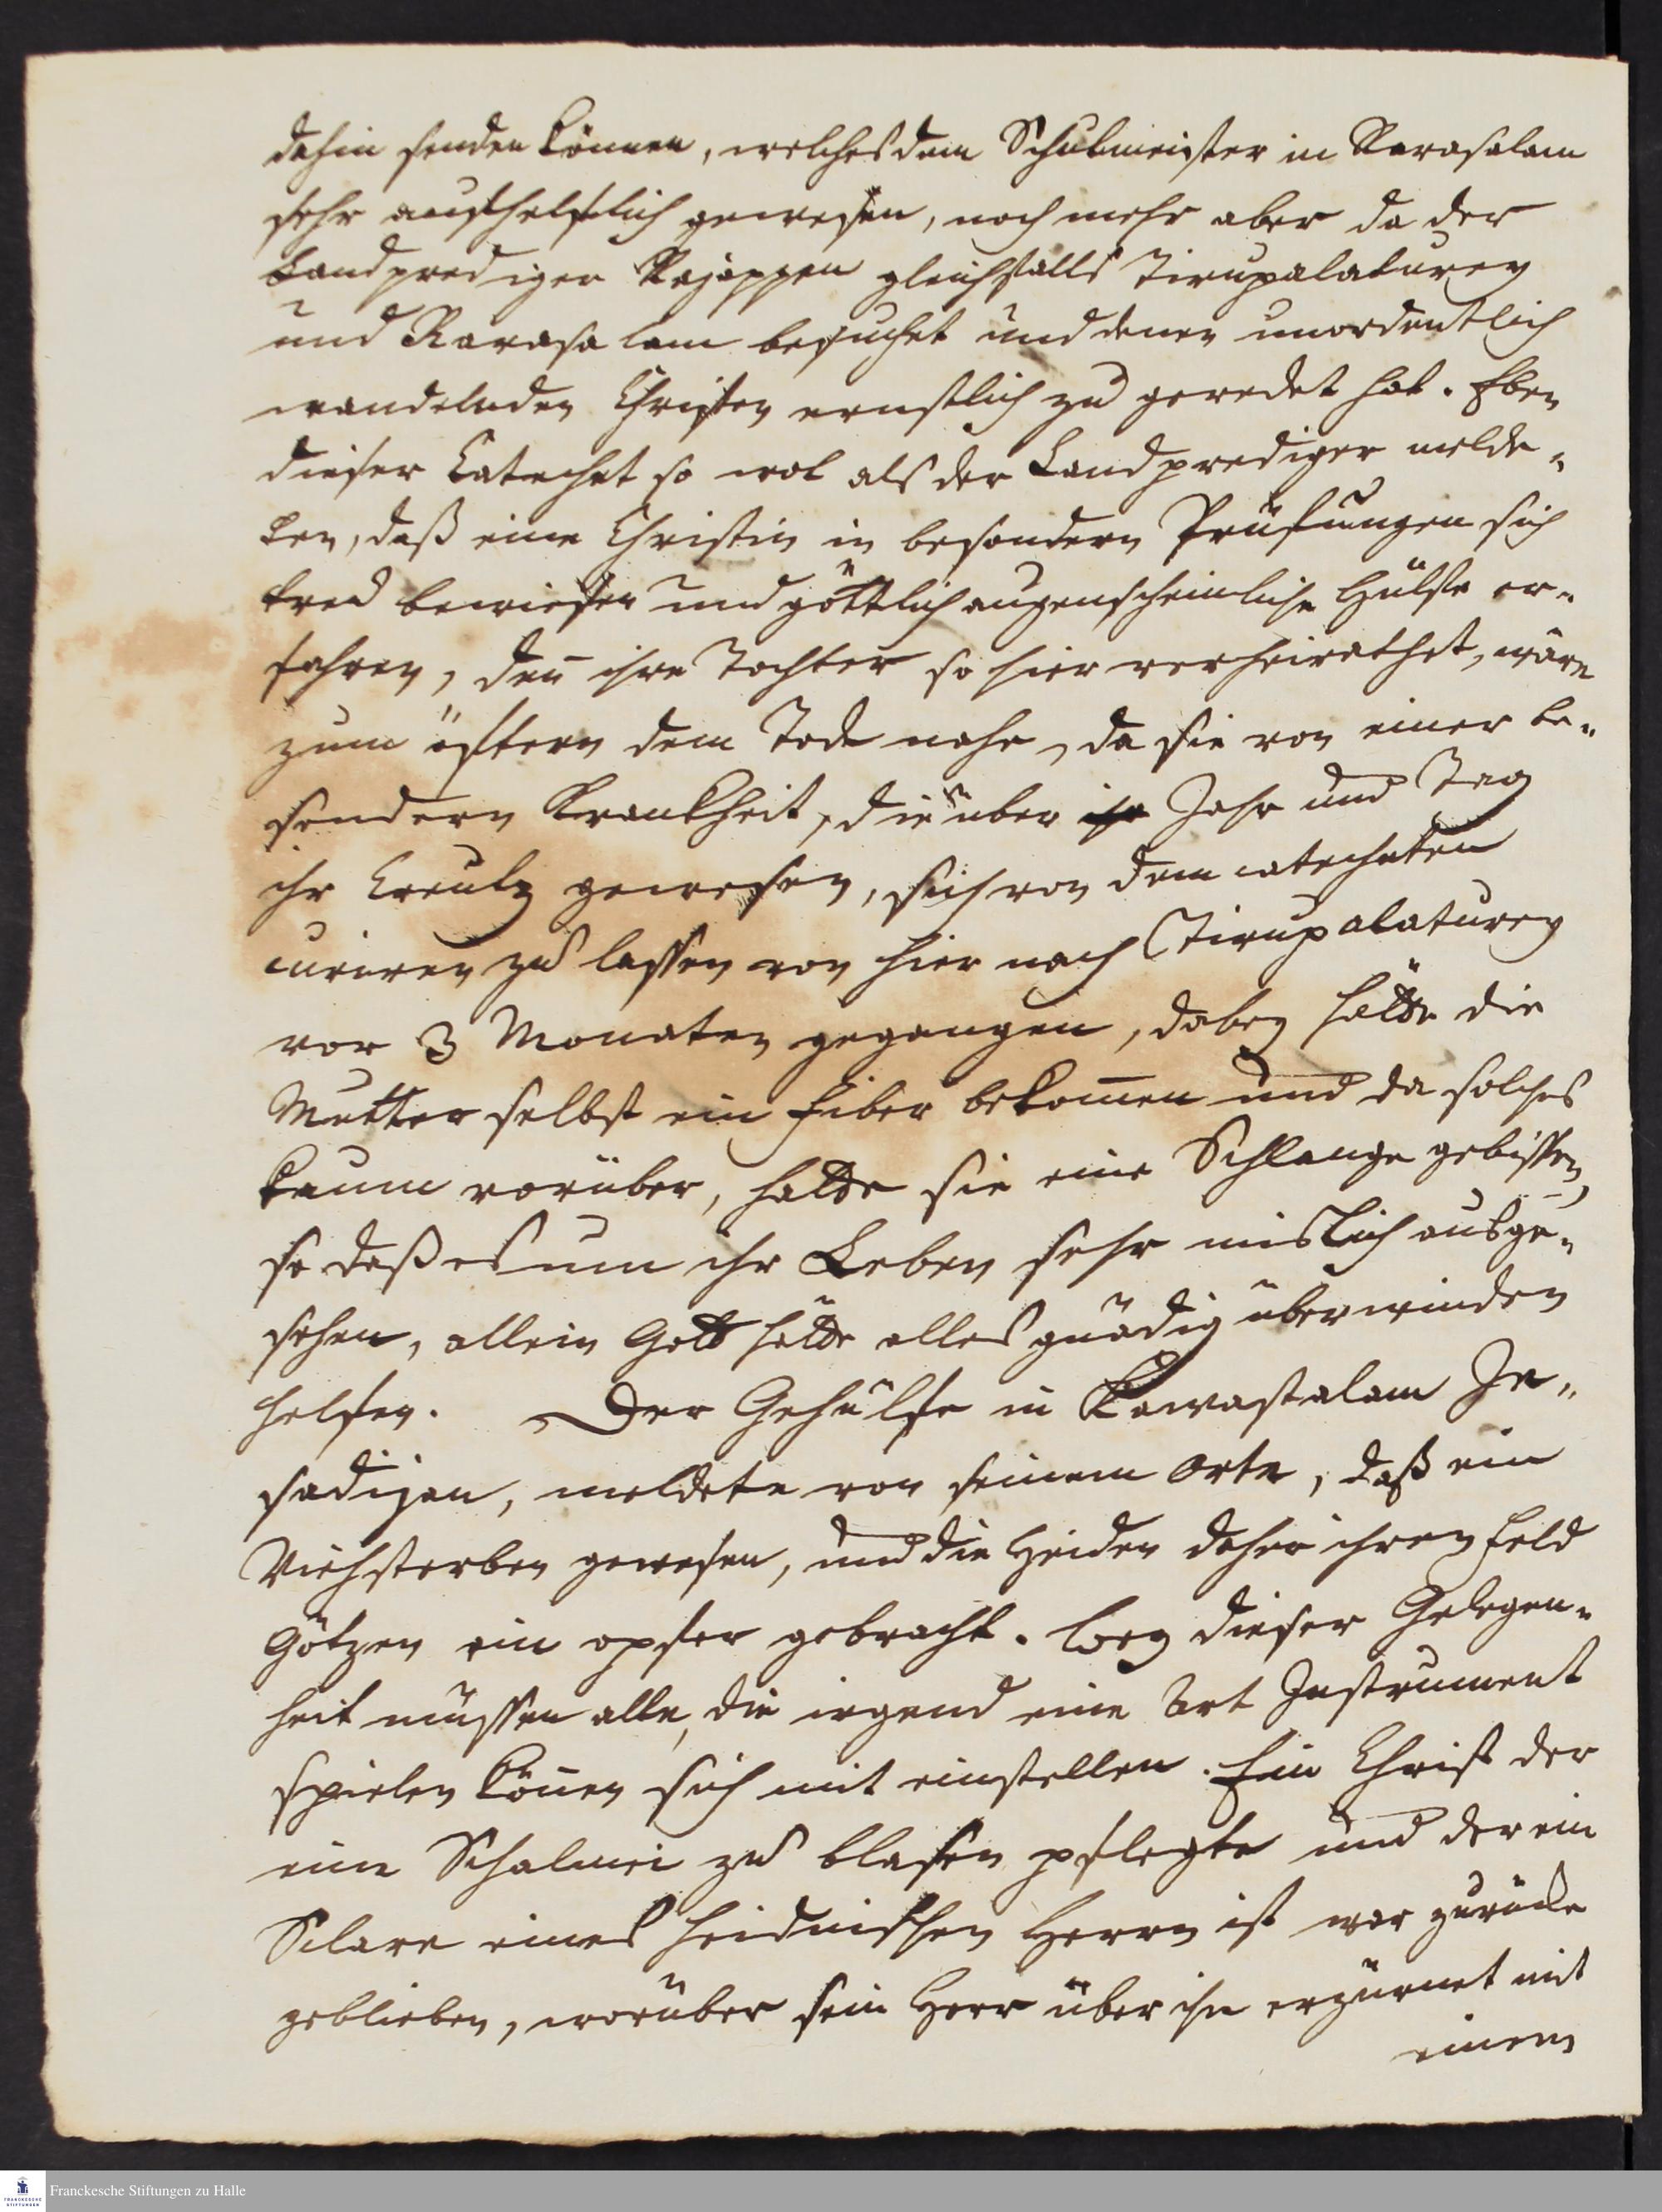 dahin senden können, welches dem Schulmeister in Karasalam
sehr aushelflich gewesen, noch mehr aber da der
Landprediger Rajappen gleichfalls Tirupalaturey
und Karasalam besuchet und denen unordentlich
wandelnden Christen ernstlich zu geredet hat. Eben
dieser Catechet so wol als der Landprediger melde-
ten, daß eine Christin in besondern Prüfungen sich
treu bewiesen und göttlich augenscheinliche Hülfe er-
fahren, deñ ihre Tochter so hier verheirathet, wäre
zum öftern dem Tode nahe, da sie von einer be-
sondern Krankheit, die über Jahr und Tag
ihr Creutz gewesen, sich von dem catecheten
curiren zu lassen von hier nach Tirupalaturey
vor 3 Monaten gegangen, dabey hätte die
Mutter selbst ein Fiber bekom̄en und da solches
kaum vorüber, hätte sie eine Schlange gebissen,
so daß es um ihr Leben sehr mislich ausge-
sehen, allein Gott hätte alles gnädig überwinden
helfen. Der Gehülfe in Kawastalam Je-
sadijan, meldete von seinem Orte, daß ein
Viehsterben gewesen, und die Heiden daher ihren Feld
Götzen ein opfer gebracht. Bey dieser Gelegen-
heit müssen alle, die irgend eine Art Instrument
spielen köñen sich mit einstellen. Ein Christ der
eine Schalmei zu blasen pflegte und der ein
Sclave eines heidnischen Herrn ist war zurücke
geblieben, worüber sein Herr über ihn erzürnet mit
einem
Franckesche Stiftungen zu Halle
FRANCKESCHE
STIFTUNGEN